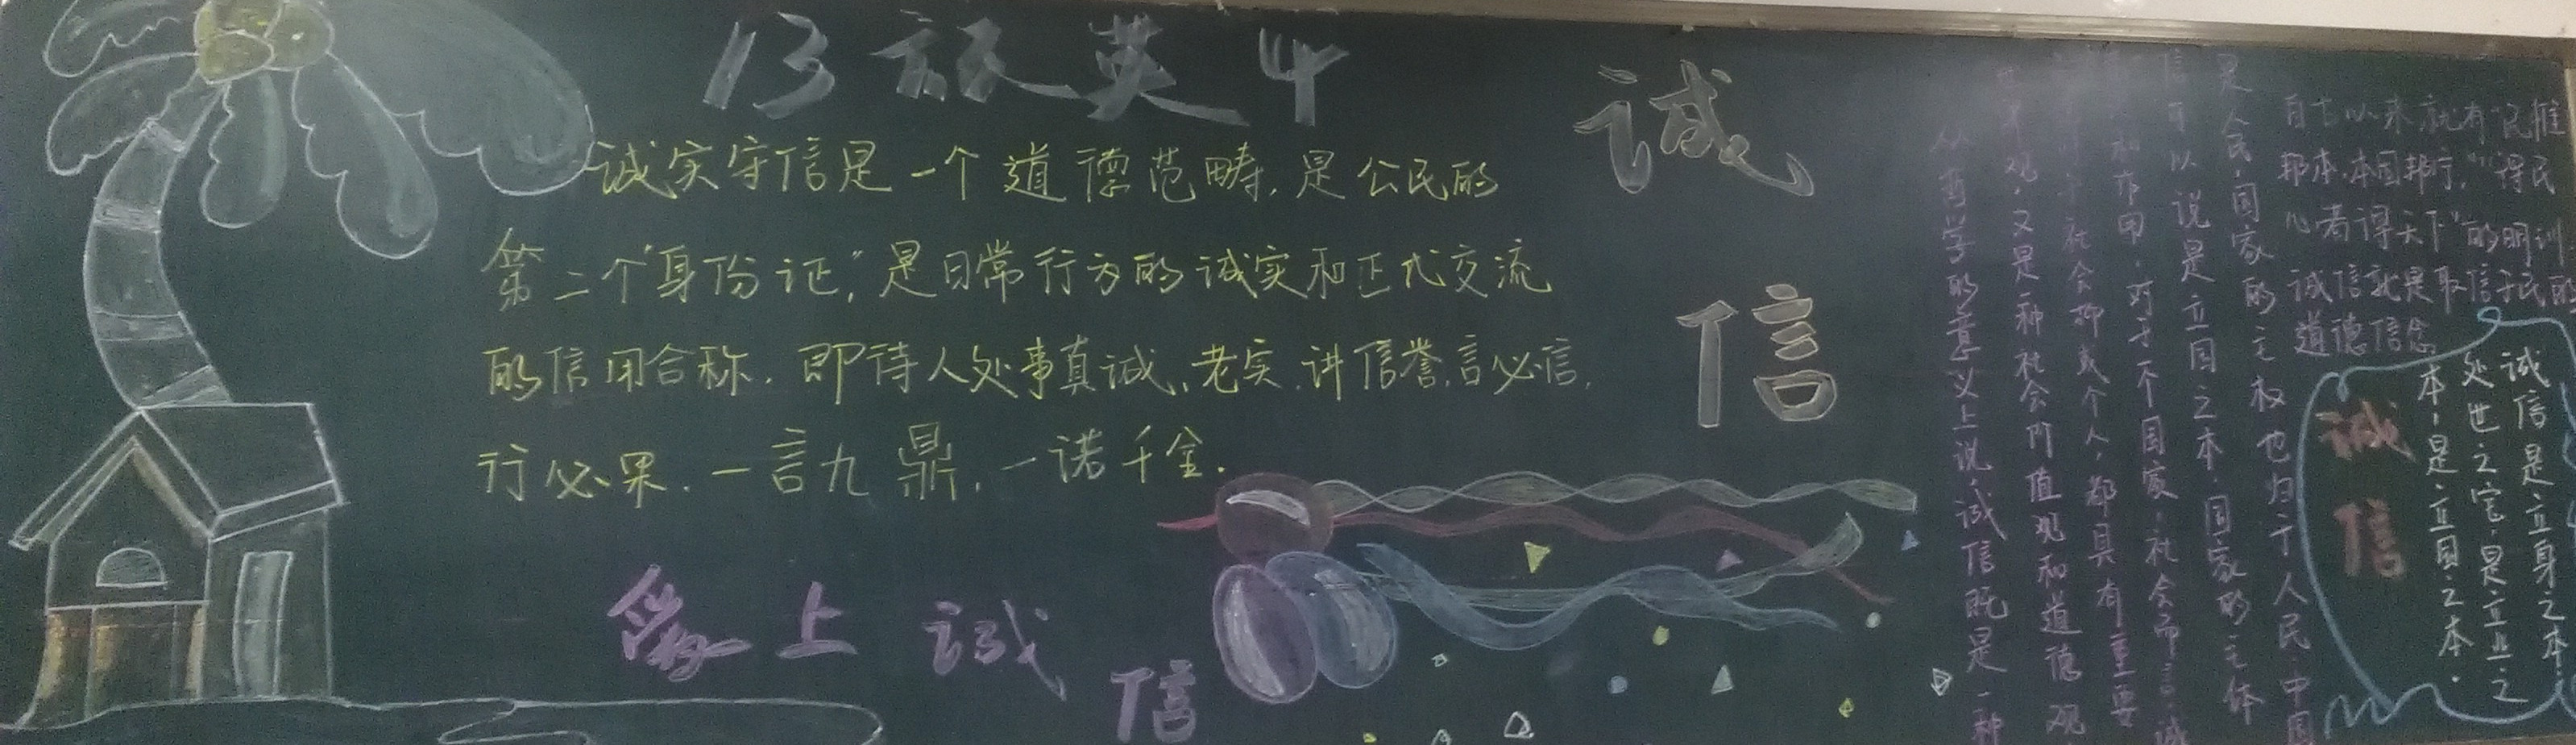 13级英4
诚信
诚实守信是一个道德范畴,是公民的
第二个“身份证”,是日常行为的诚实和正式交流
的信用合称.即待人处事真诚、老实、讲信誉,言必信,
行必果.一言九鼎,一诺千金.
爱上诚信
从哲学的意义上说,诚信既是一种
世界观,又是一种社会价值观和道德观,
社会抑或个人,都具有重要
和作用.对于一个国家、社会而言,诚
信可以说是立国之本.国家的主体
是人民,国家的主权也归于人民.中国
自古以来,就有“民惟
邦本,本固邦宁,”“得民
心者得天下”的明训
诚信就是取信于民的
道德信念.
诚信
诚信是立身之本,
处世之宝,是立业之
本,是立国之本.